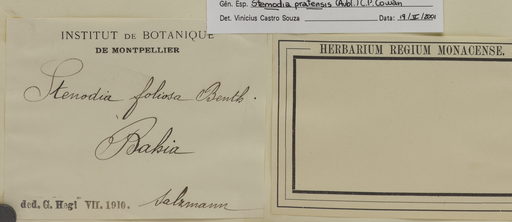 Gén. Esp. Stemodia pratensis (Aubl.) C.P. Cowan
Det. Vinicius Castro Souza Data: 19/II/2001
INSTITUT DE BOTANIQUE
DE MONTPELLIER
Stenodia foliosa Benth.
Bahia
ded. G. Hegi VII. 1910. Salzmann
HERBARIUM REGIUM MONACENSE.